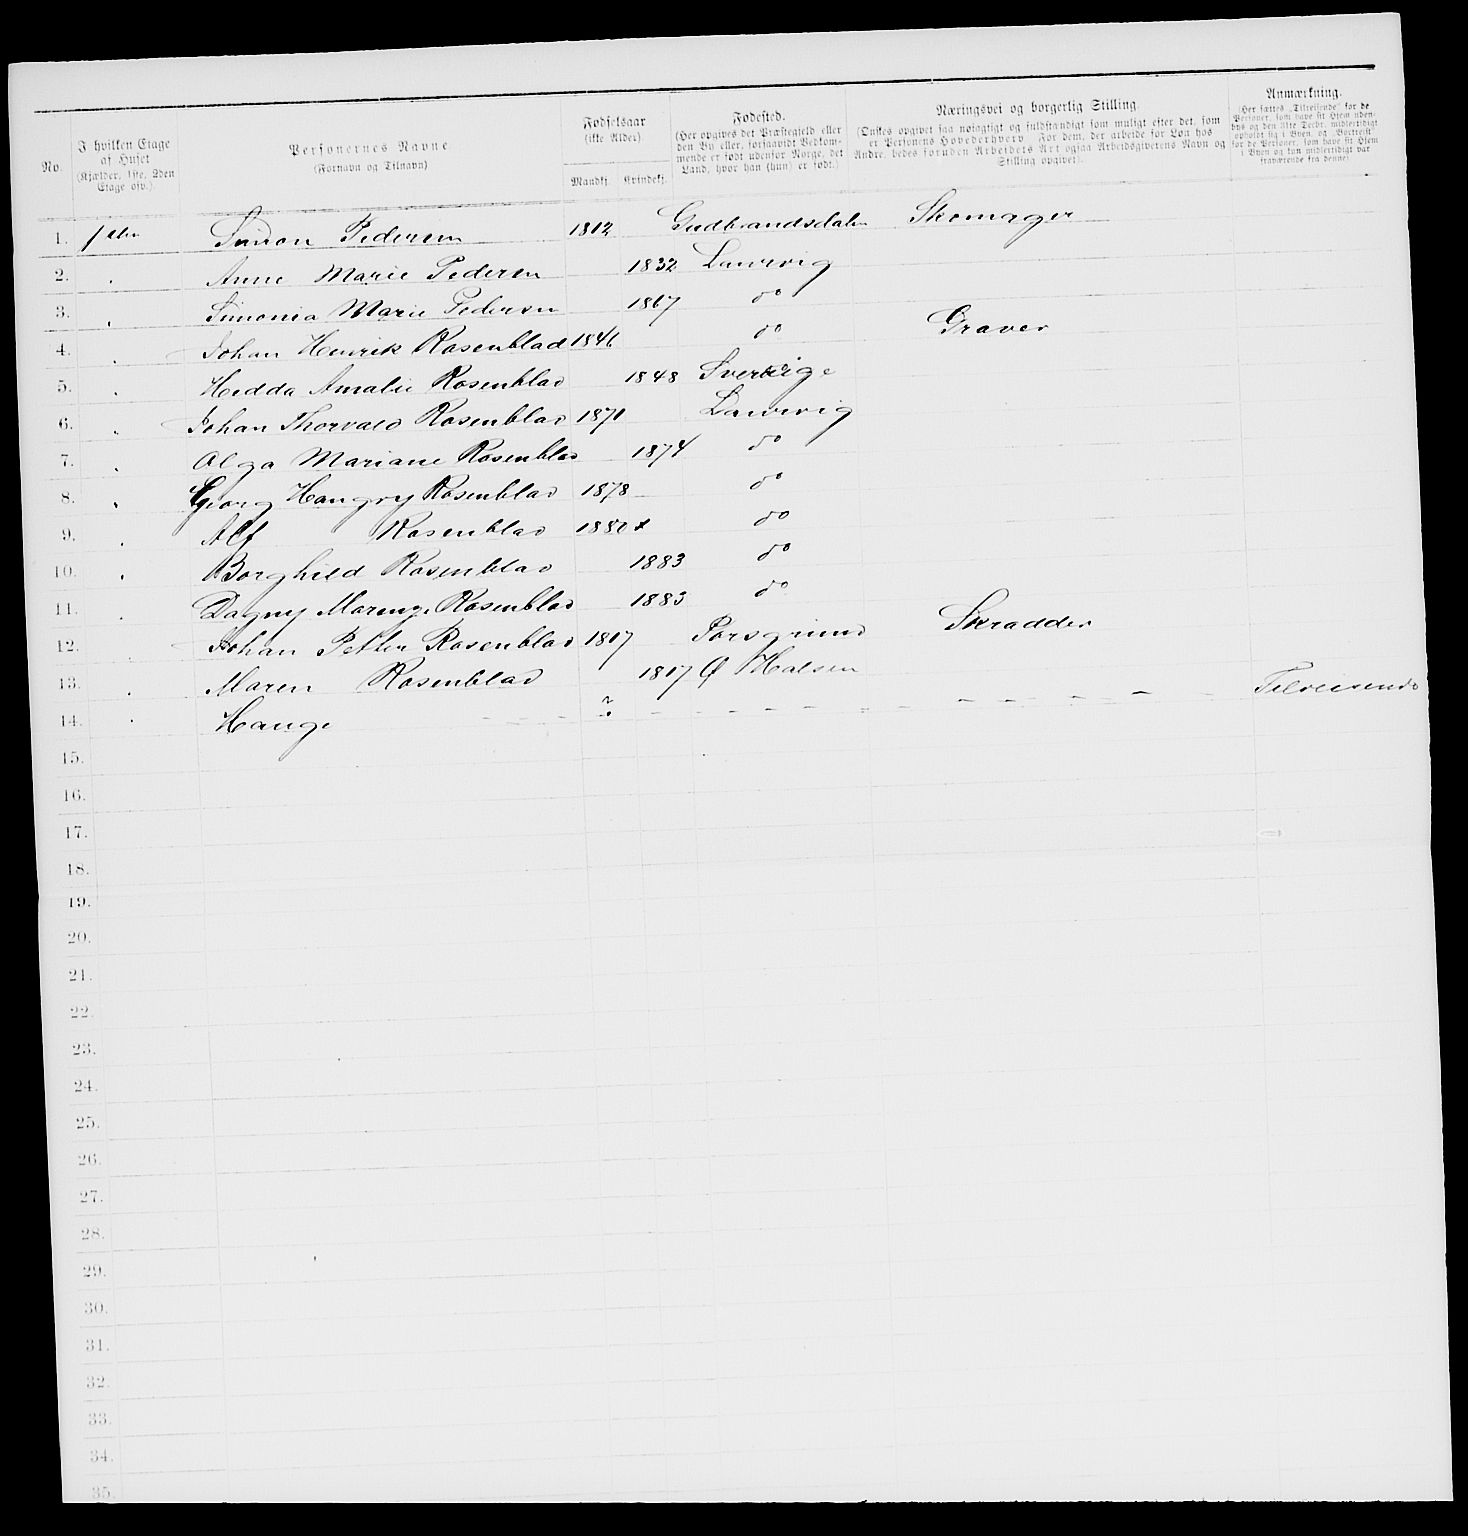 No. I hvilken Etage af Huset (Kjælder, 1ste, 2den Etage osv.). Personernes Navne (Fornavn og Tilnavn) Fødselsaar (ikke Alder) Mandkj. Kvindekj. Fødested. (Her opgives det Præstegjeld eller den By eller, forsaavidt Vedkommende er født udenfor Norge, det Land, hvor han (hun) er født.) Næringsvei og borgerlig Stilling. (Ønskes opgivet saa nøiagtigt og fuldstændigt som muligt efter det, som er Personens Hovederhverv. For dem, der arbeide for Løn hos Andre, bedes foruden Arbeidets Art ogsaa Arbeidsgiverens Navn og Stilling opgivet). Anmærkning. (Her sættes „Tilreisende" for de Personer, som have sit Hjem udenbys og den 31te Decbr. midlertidigt opholdt sig i Byen, og „Bortreist" for de Personer, som have sit Hjem i Byen og kun midlertidigt var fraværende fra denne)
1. Simon Pedersen 1812 Gudbrandsdalen Skomager
2. Anne Marie Pedersen 1832 Laurvig
3. Simonia Marie Pedersen 1867 do
4. Johan Henrik Rosenblad 1846 do Graver
5. Hedda Amalie Rosenblad 1848 Sverrige
6. Johan Thorvald Rosenblad 1871 Laurvig
7. Olga Mariane Rosenblad 1874 do
8. Georg Hangry Rosenblad 1878 do
9. Alf Rosenblad 1880 x do
10. Borghild Rosenblad 1883 do
11. Dagny Rosenblad 1883 do
12. Johan Petter Rosenblad 1817 Porsgrund Skradder
13. Maren Rosenblad 1817 Ø Halsen
14. Hauge ? Tilreisende
15.
16.
17.
18.
19.
20.
21.
22.
23.
24.
25.
26.
27.
28.
29.
30.
31.
32.
33.
34.
35.